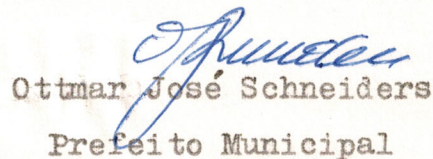 Ottmar José Schneiders
Prefeito Municipal